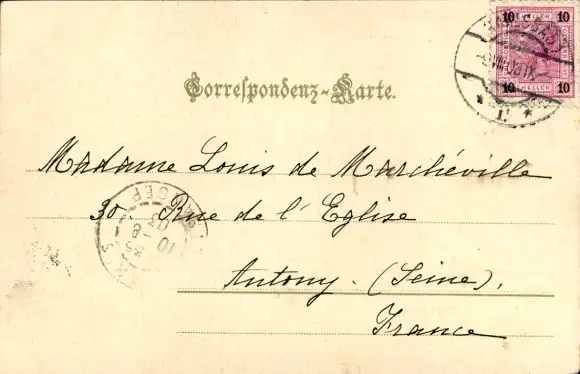 10 10
10 HELLER 10
Correspondenz-Karte.
Madame Louis de Marchéville
30. Rue de l'Eglise
Antony. (Seine).
France